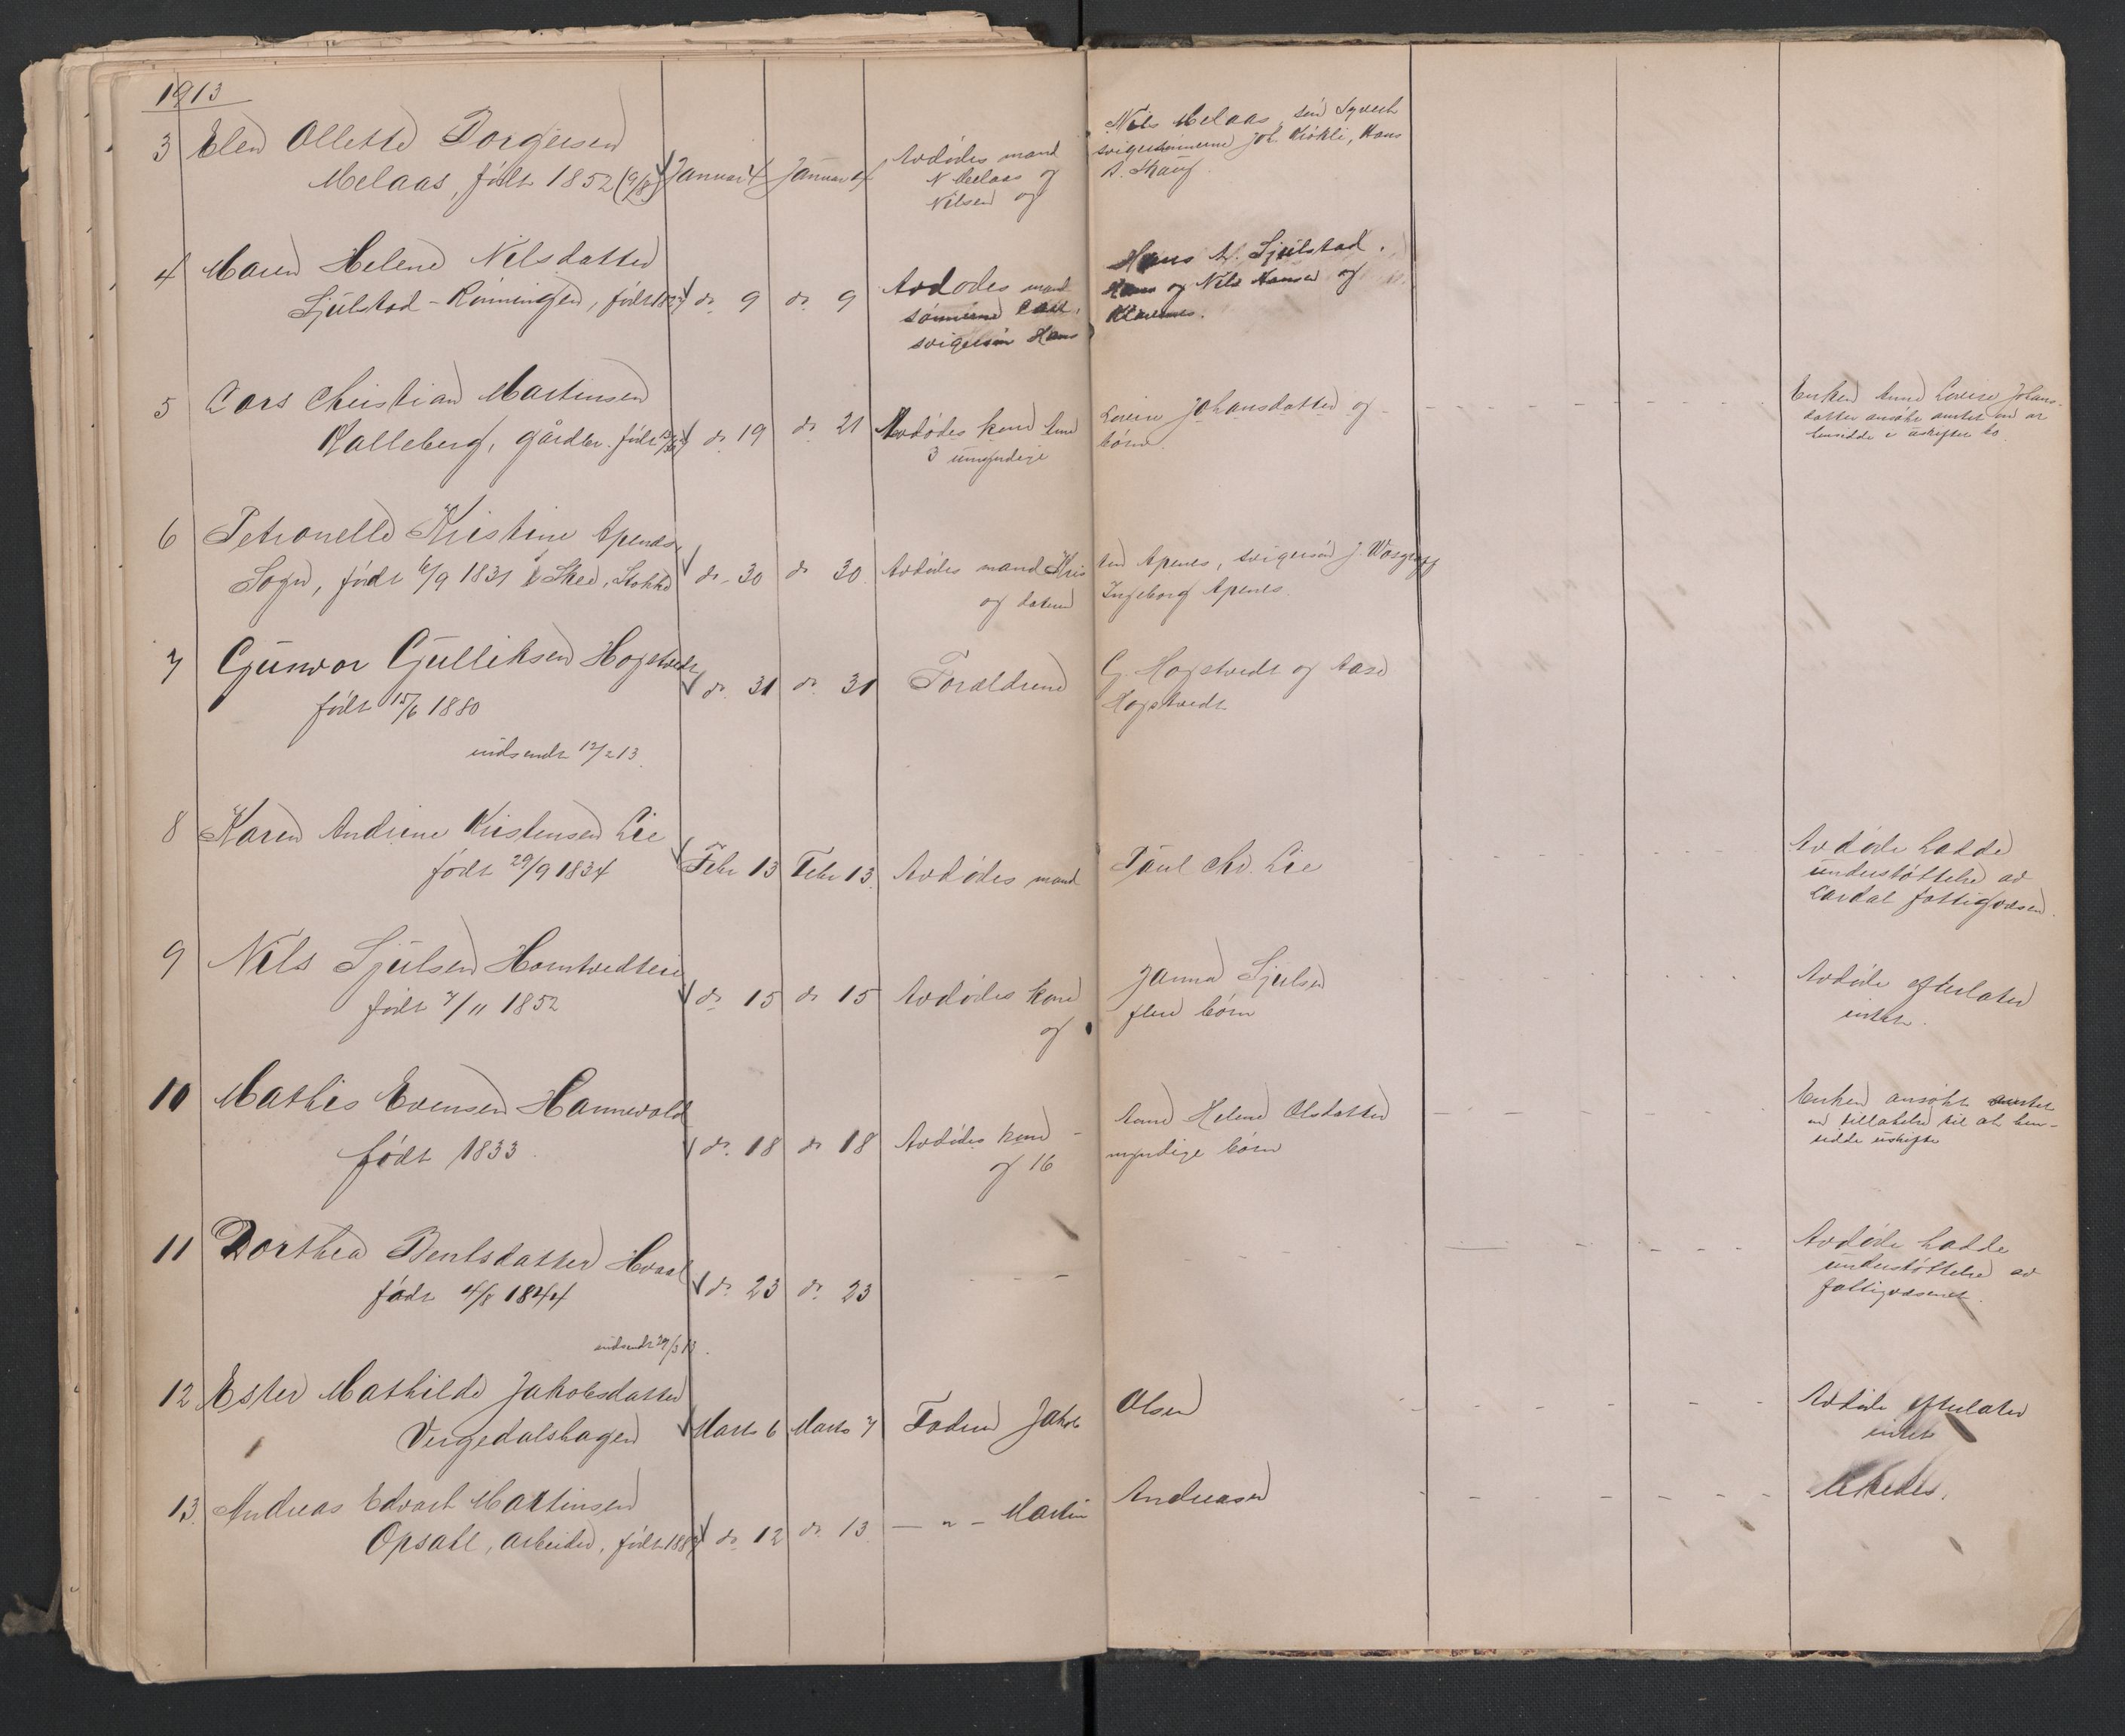 1913
3 Elen Ollette Borgersen
Melaas, født 1852 (9/8) Januar 4 Januar 4 Avdødes mand
N. Melaas og
Nilsen og
Nils Melaas, søn Syvert
svigersønnerne Joh. Kirkli, Hans
A. Skaug.
4 Maren Helene Nilsdatter
Sjulstad-Rønningen, født do 9 do 9 Avdødes mand
sønnerne Carl,
svigersøn Hans
Hans A. Sjulstad.
Hans og Nils Hansen og
Klavenes.
5 Lars Christian Martinsen
Kalleberg, gårdbr. født do 19 do 21 Avdødes kone Anne
3 umyndige
Lovise Johansdatter og
børn.
Enken Anne Lovise Johans-
datter ansøkt amtet om at
hensidde i uskiftet bo.
6 Petronelle Kristine Apenæs
Sogn, født 6/9 1831 i Skee, Stokke do 30 do 30 Avdødes mand Kris
og datter
ten Apenes, svigersøn J.
Ingeborg Apenes.
7 Gunvor Gulliksen Hogstvedt
født 15/6 1880 do 31 do 31 Forældrene
G. Hogstvedt og Aase
Hogstvedt
indsendt 12/2 13.
8 Karen Andrine Kristensen Lie
født 29/9 1834 Febr 13 Febr 13. Avdødes mand
Paul Chr. Lie
Avdøde hadde
understøttelse av
Lardal fattigvæsen.
9 Nils Sjulsen Homtvedteie
født 7/11 1852 do 15 do 15 Avdødes kone
og
Janna Sjulsen
flere børn
Avdøde efterlater
intet.
10 Mathis Evensen Hannevold
født 1833. do 18 do 18 Avdødes kone -
og 16
Anne Helene Olsdatter
myndige børn
Enken ansøkt amtet
om tillatelse til at hen-
sidde uskifte
11 Dorthea Bentsdatter Hvaal
født 4/8 1844 do 23 do 23
Avdøde hadde
understøttelse av
fattigvæsenet.
indsendt 29/3 13.
12 Ester Mathilde Jakobsdatter
Vergedalshagen Marts 6 Marts 7 Faderen Jakob
Olsen
Avdøde efterlater
intet
13. Andreas Edvart Martinsen
Opsahl, arbeider, født do 12 do 13 — " — Martin
Andreasen
likeledes.